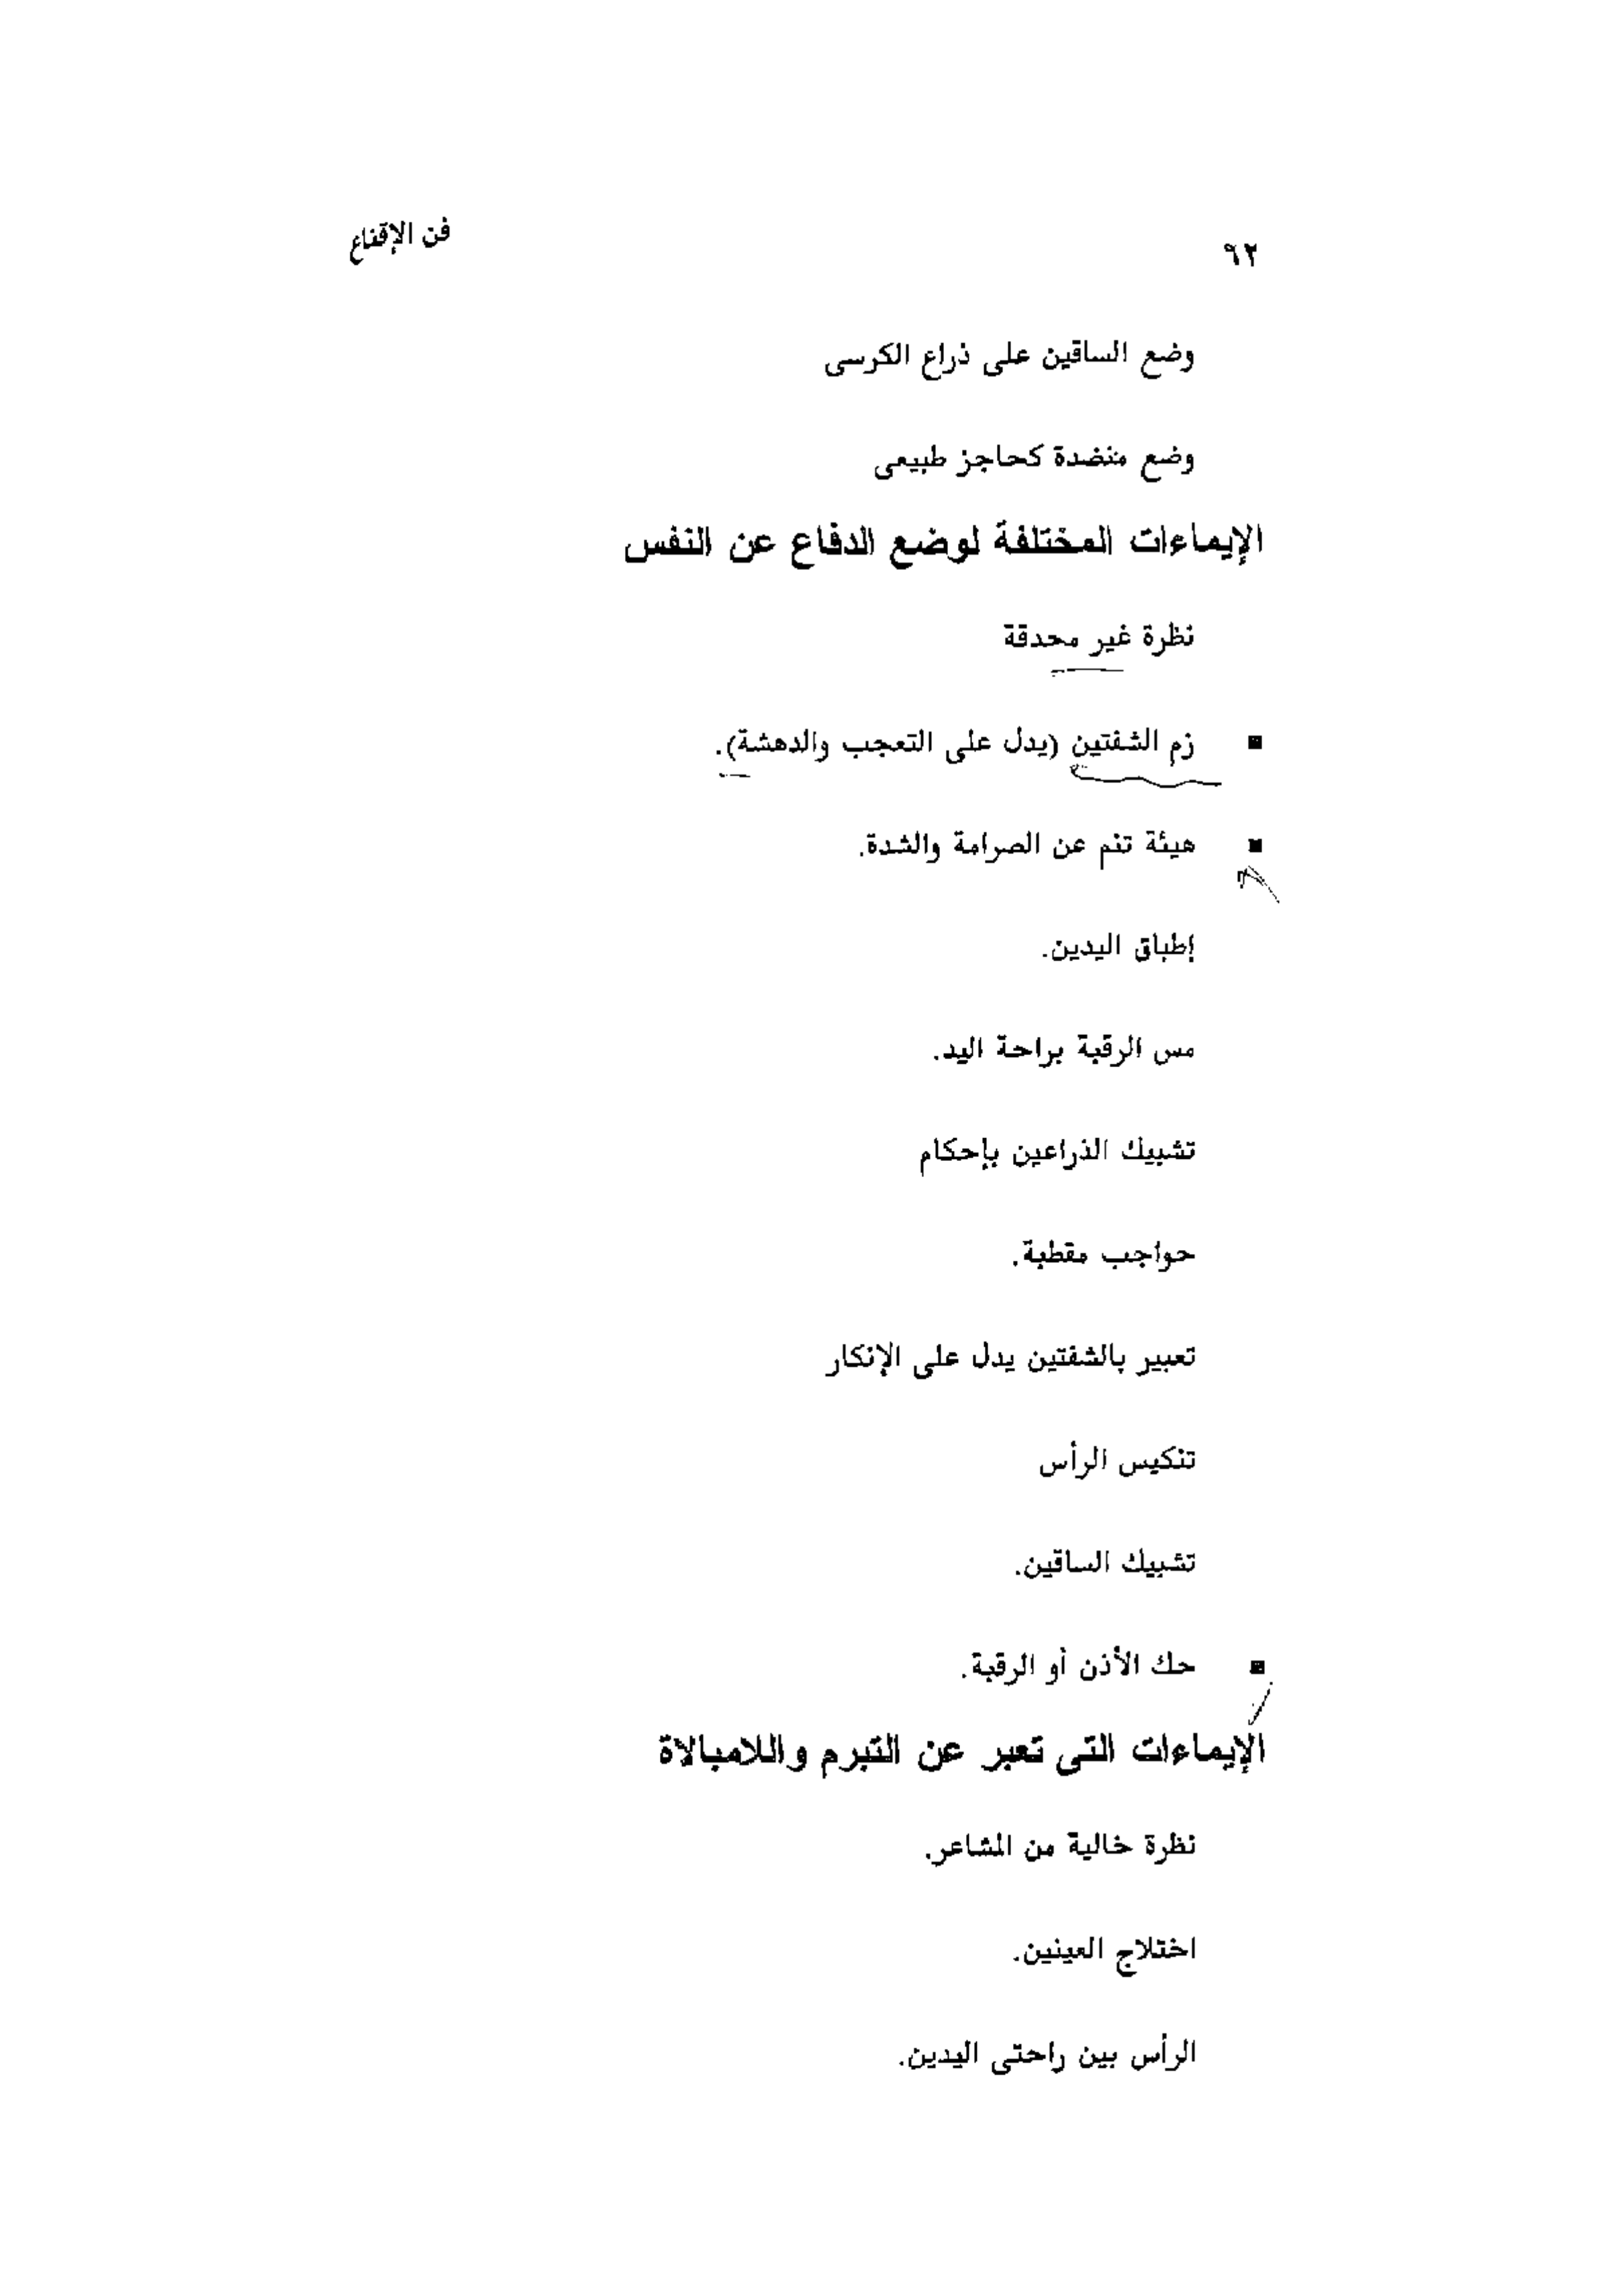 ٩٢
فن الإقناع
وضع الساقين على ذراع الكرسى
وضع منضدة كحاجز طبيعى
الإيماءات المختلفة لوضع الدفاع عن النفس
نظرة غير محدقة
■ زم الشفتين (يدل على التعجب والدهشة).
■ هيئة تنم عن الصرامة والشدة.
إطباق اليدين.
مس الرقبة براحة اليد.
تشبيك الذراعين بإحكام
حواجب مقطبة.
تعبير بالشفتين يدل على الإنكار
تنكيس الرأس
تشبيك الساقين.
■ حك الأذن أو الرقبة.
الإيماءات التى تعبر عن التبرم واللامبالاة
نظرة خالية من المشاعر.
اختلاج العينين.
الرأس بين راحتى اليدين.